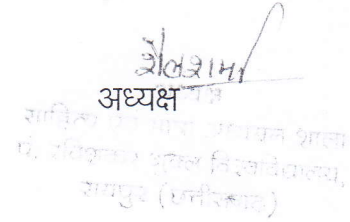 शैलशर्मा
अध्यक्ष
साहित्य एवं भाषा अध्ययन शाला
पं. रविशंकर शुक्ल विश्वविद्यालय,
रायपुर (छत्तीसगढ़)